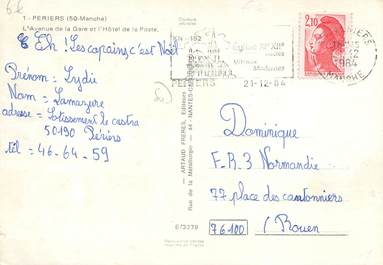 6€
1 - PERIERS (50-Manche)
L'Avenue de la Gare et l'Hôtel de la Poste
Eh ! Les copains, c'est Noël
Prénom = Lydie
Nom = Lamazure
adresse = Lotissement le castra
50190 Périers
tél = 46-64-59
Eglise XIIe
Vitraux
Modernes
PERIERS 21-12-84
2,10
1984
MANCHE
ARTAUD FRERES, Editeurs
Rue de la Métallurgie - 44 NANTES
673279
Dominique
F.R.3 Normandie
77 place des cantonniers
76100 Rouen